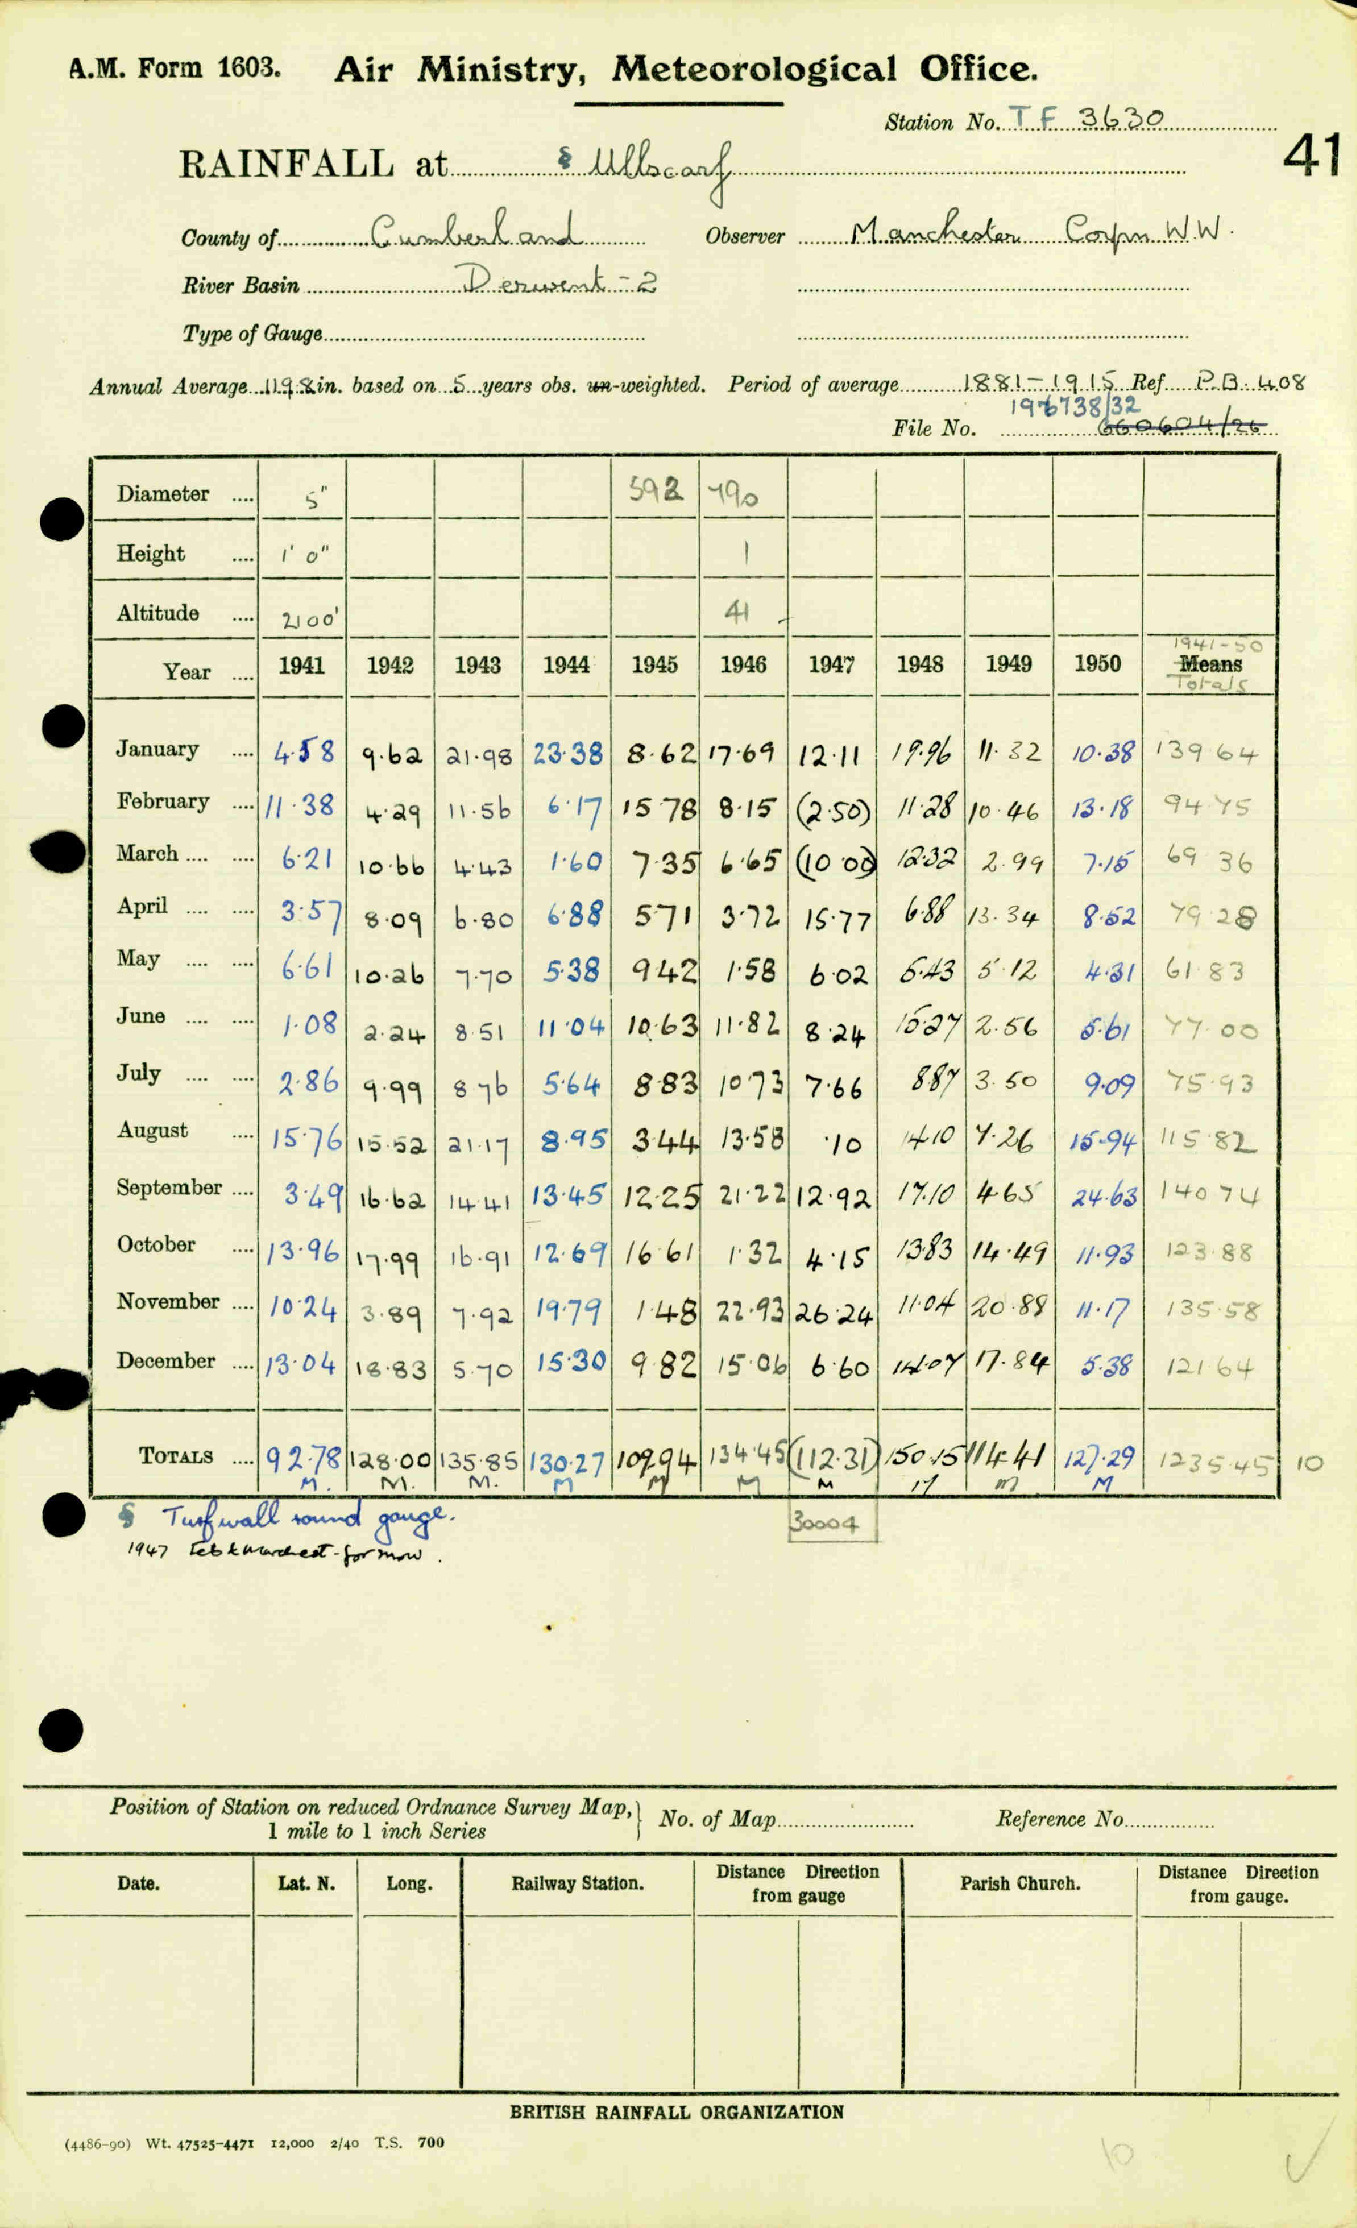 A.M. Form 1603. Air Ministry, Meteorological Office.
Station No. TF 3630
41
RAINFALL at § Ullscarf
County of Cumberland Observer Manchester Corpn W.W.
River Basin Derwent - 2
Type of Gauge
Annual Average 119.8 in. based on 5 years obs. un-weighted. Period of average 1881-1915 Ref P.B. 408
196738/32
File No. 660604/26
Diameter .... 5" 592 490
Height .... 1' 0" 1
Altitude .... 2100' 41
1941-50
Year .... 1941 1942 1943 1944 1945 1946 1947 1948 1949 1950 Means
Totals
January .... 4.58 9.62 21.98 23.38 8.62 17.69 12.11 19.96 11.32 10.38 139 64
February .... 11.38 4.29 11.56 6.17 15 78 8.15 (2.50) 11.28 10.46 13.18 94 75
March .... .... 6.21 10.66 4.43 1.60 7.35 6.65 (10 00) 12.32 2.99 7.15 69 36
April .... .... 3.57 8.09 6.80 6.88 5.71 3.72 15.77 6.88 13.34 8.52 79.28
May .... .... 6.61 10.26 7.70 5.38 9.42 1.58 6.02 5.43 5.12 4.31 61.83
June .... .... 1.08 2.24 8.51 11.04 10.63 11.82 8.24 15.27 2.56 5.61 77.00
July .... .... 2.86 9.99 8.76 5.64 8.83 10.73 7.66 8.87 3.50 9.09 75.93
August .... 15.76 15.52 21.17 8.95 3.44 13.58 .10 14.10 7.26 15.94 115.82
September .... 3.49 16.62 14.41 13.45 12.25 21.22 12.92 17.10 4.65 24.63 140 74
October .... 13.96 17.99 16.91 12.69 16.61 1.32 4.15 13.83 14.49 11.93 123.88
November .... 10.24 3.89 7.92 19.79 1.48 22.93 26.24 11.04 20.88 11.17 135.58
December .... 13.04 18.83 5.70 15.30 9.82 15.06 6.60 14.07 17.84 5.38 121 64
TOTALS .... 92.78 128.00 135.85 130.27 109.94 134.45 (112.31) 150.15 114.41 127.29 1235.45 10
M. M. M. M M M M M M M
§ Turfwall round gauge. 30004
1947 Feb & March est. for snow.
Position of Station on reduced Ordnance Survey Map,
1 mile to 1 inch Series
No. of Map Reference No.
Date. Lat. N. Long. Railway Station. Distance Direction from gauge Parish Church. Distance Direction from gauge.
BRITISH RAINFALL ORGANIZATION
(4486-90) Wt. 47525-4471 12,000 2/40 T.S. 700
10